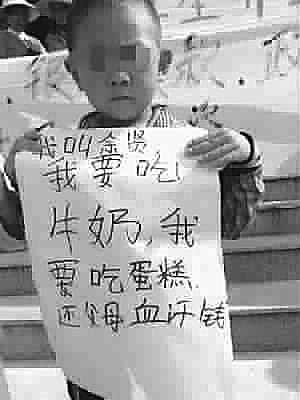 我叫金贤
我要吃
牛奶,我
要吃蛋糕.
还父母血汗钱